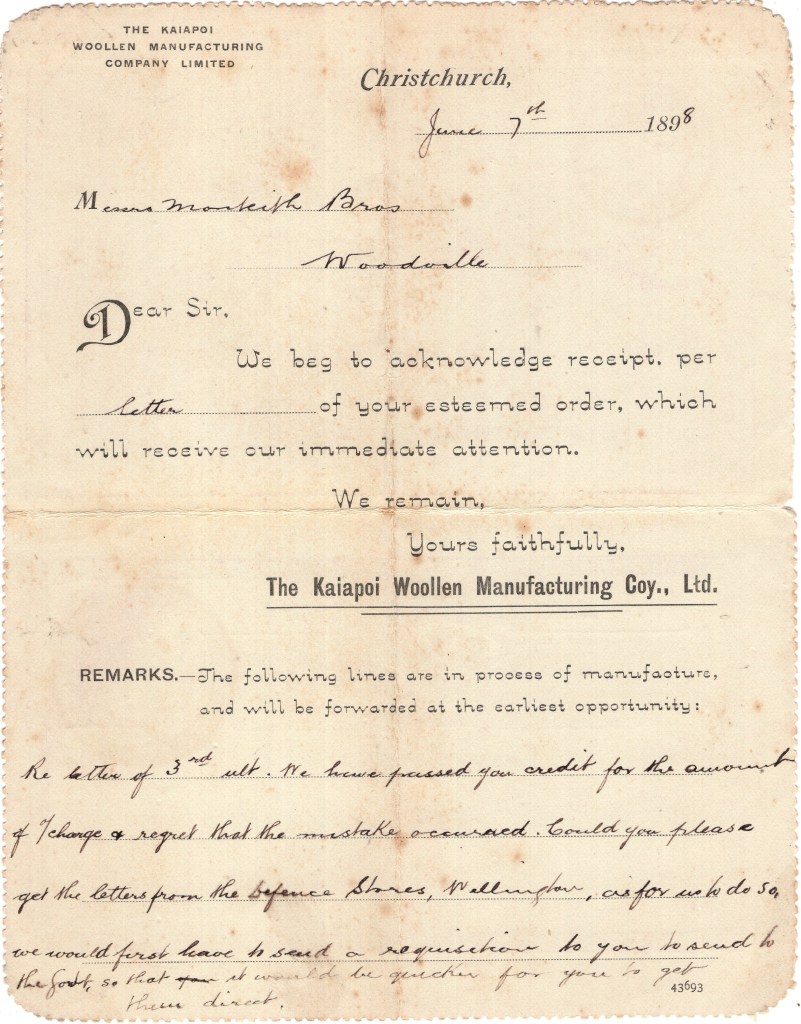 THE KAIAPOI
WOOLLEN MANUFACTURING
COMPANY LIMITED
Christchurch,
June 7th 1898
Messrs Monteith Bros
Woodville
Dear Sir,
We beg to acknowledge receipt, per
letter of your esteemed order, which
will receive our immediate attention.
We remain,
Yours faithfully,
The Kaiapoi Woollen Manufacturing Coy., Ltd.
REMARKS.—The following lines are in process of manufacture,
and will be forwarded at the earliest opportunity:
Re letter of 3rd ult. We have passed you credit for the amount
of o/charge & regret that the mistake occurred. Could you please
get the letters from the Defence Stores, Wellington, as for us to do so,
we would first have to send a requisition to you to send to
the Govt, so that it would be quicker for you to get
them direct.
43693